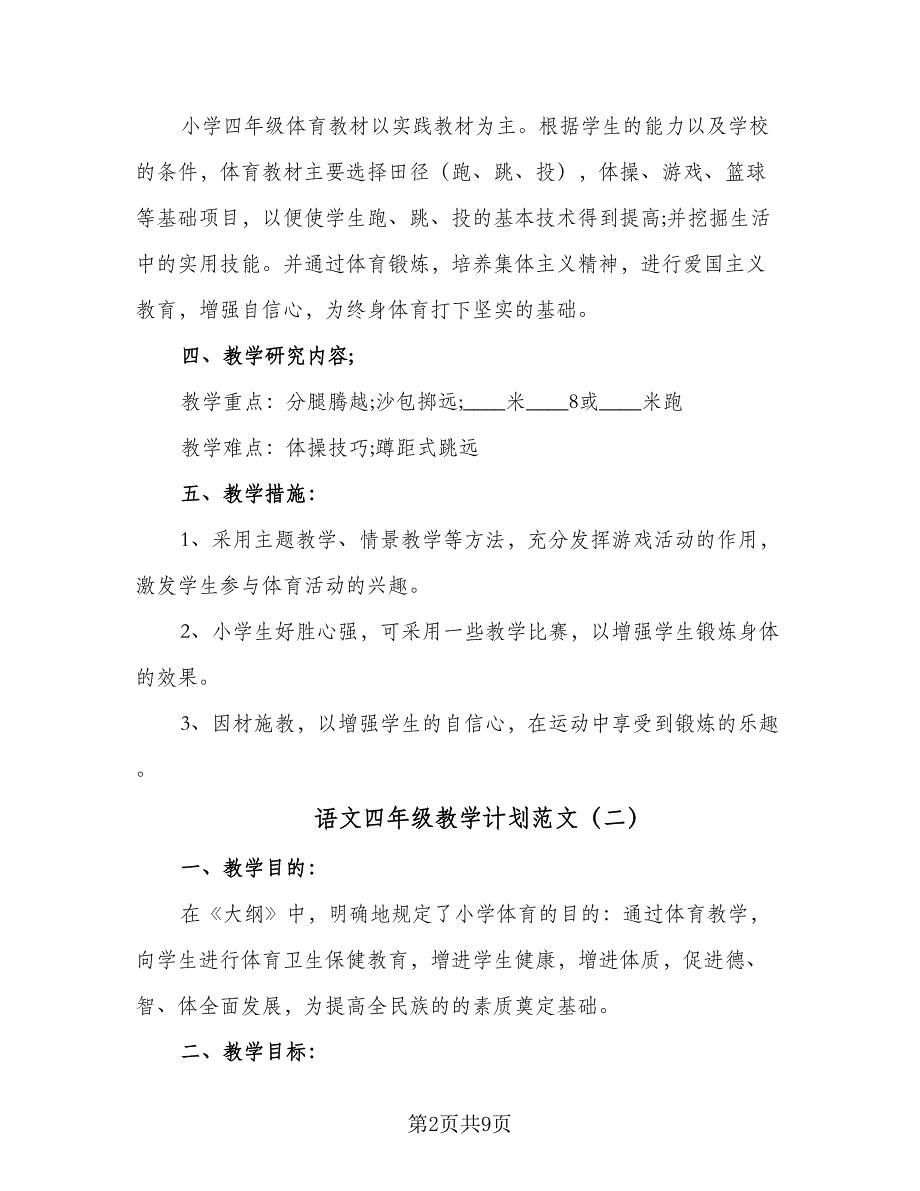 小学四年级体育教材以实践教材为主。根据学生的能力以及学校
的条件，体育教材主要选择田径（跑、跳、投），体操、游戏、篮球
等基础项目，以便使学生跑、跳、投的基本技术得到提高;并挖掘生活
中的实用技能。并通过体育锻炼，培养集体主义精神，进行爱国主义
教育，增强自信心，为终身体育打下坚实的基础。
四、教学研究内容;
教学重点：分腿腾越;沙包掷远;____米____8或____米跑
教学难点：体操技巧;蹲距式跳远
五、教学措施：
1、采用主题教学、情景教学等方法，充分发挥游戏活动的作用，
激发学生参与体育活动的兴趣。
2、小学生好胜心强，可采用一些教学比赛，以增强学生锻炼身体
的效果。
3、因材施教，以增强学生的自信心，在运动中享受到锻炼的乐趣
。
语文四年级教学计划范文（二）
一、教学目的：
在《大纲》中，明确地规定了小学体育的目的：通过体育教学，
向学生进行体育卫生保健教育，增进学生健康，增进体质，促进德、
智、体全面发展，为提高全民族的的素质奠定基础。
二、教学目标：
第2页共9页